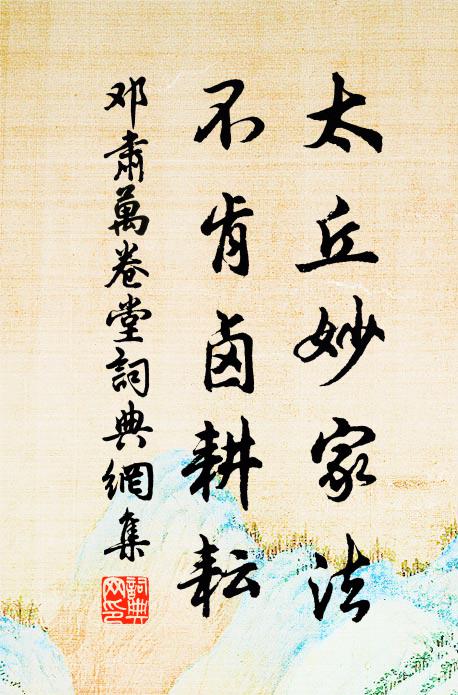 太丘妙家法
不肯卤耕耘
邓肃萬卷堂詞典網集
詞典
网印